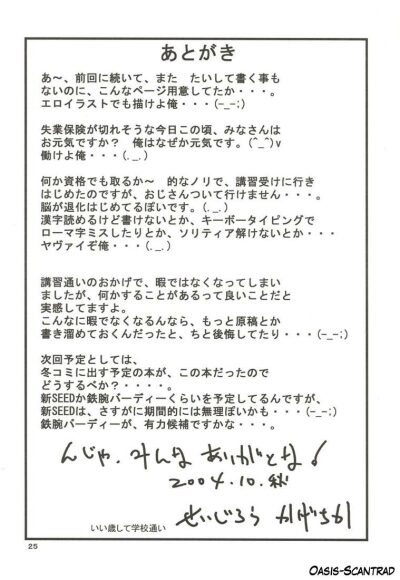 あとがき
あ～、前回に続いて、また たいして書く事も
ないのに、こんなページ用意してたか・・・。
エロイラストでも描けよ俺・・・(-_-;)
失業保険が切れそうな今日この頃、みなさんは
お元気ですか？ 俺はなぜか元気です。(^_^)v
働けよ俺・・・(._.)
何か資格でも取るか～ 的なノリで、講習受けに行き
はじめたのですが、おじさんついて行けません・・・。
脳が退化はじめてるぽいです。(._.)
漢字読めるけど書けないとか、キーボータイピングで
ローマ字ミスしたりとか、ソリティア解けないとか・・・
ヤヴァイぞ俺・・・(-_-;)
講習通いのおかげで、暇ではなくなってしまい
ましたが、何かすることがあるって良いことだと
実感してますよ。
こんなに暇でなくなるんなら、もっと原稿とか
書き溜めておくんだったと、ちと後悔してたり・・・(-_-;)
次回予定としては、
冬コミに出す予定の本が、この本だったので
どうするべか？・・・・。
新SEEDか鉄腕バーディーくらいを予定してるんですが、
新SEEDは、さすがに期間的には無理ぽいかも・・・(-_-;)
鉄腕バーディーが、有力候補ですかな・・・。
んじゃ、みんなありがとな！
2004.10.秋
せいじろう かげちか
いい歳して学校通い
25
Oasis-Scantrad